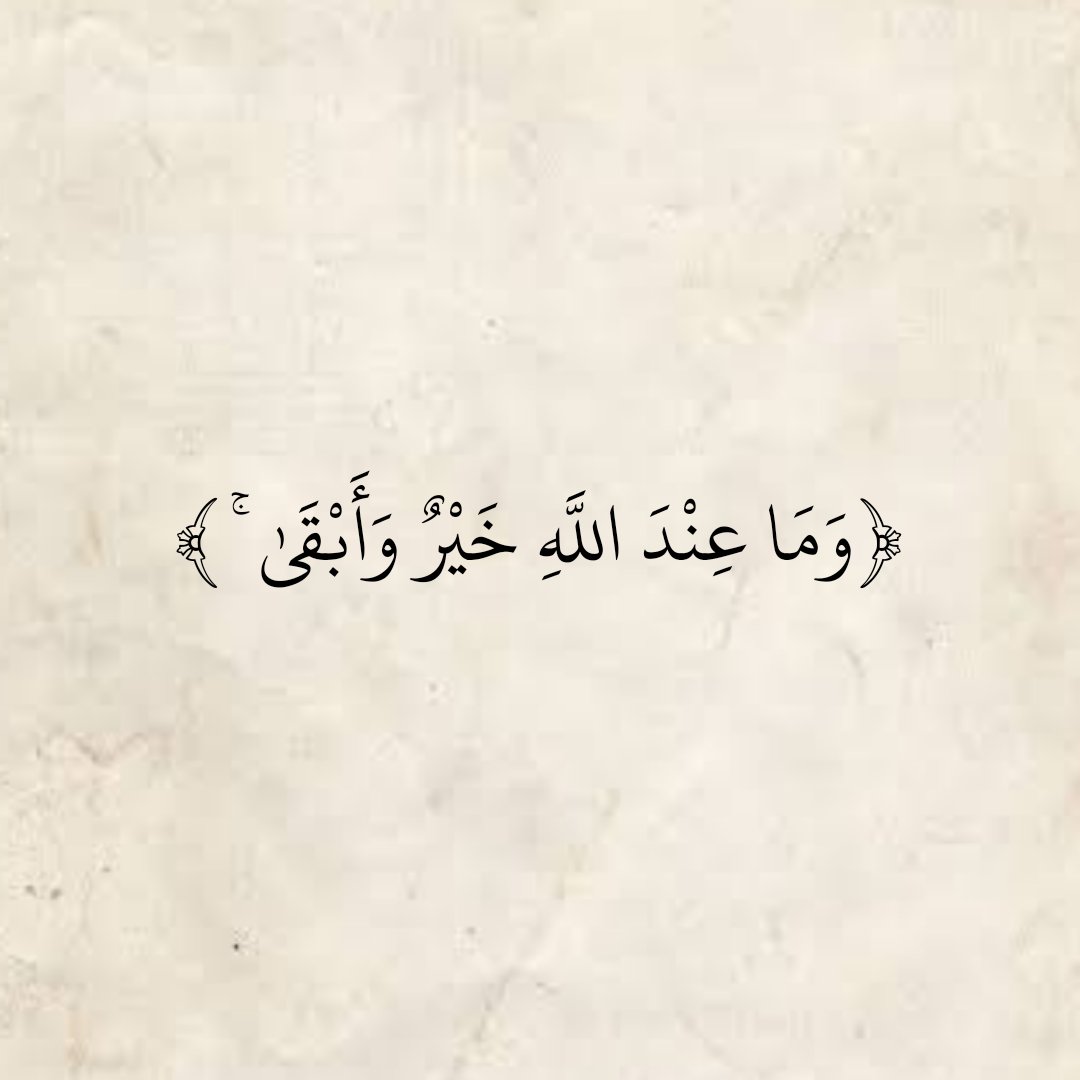 ﴿وَمَا عِنْدَ اللَّهِ خَيْرٌ وَأَبْقَىٰ ۚ﴾